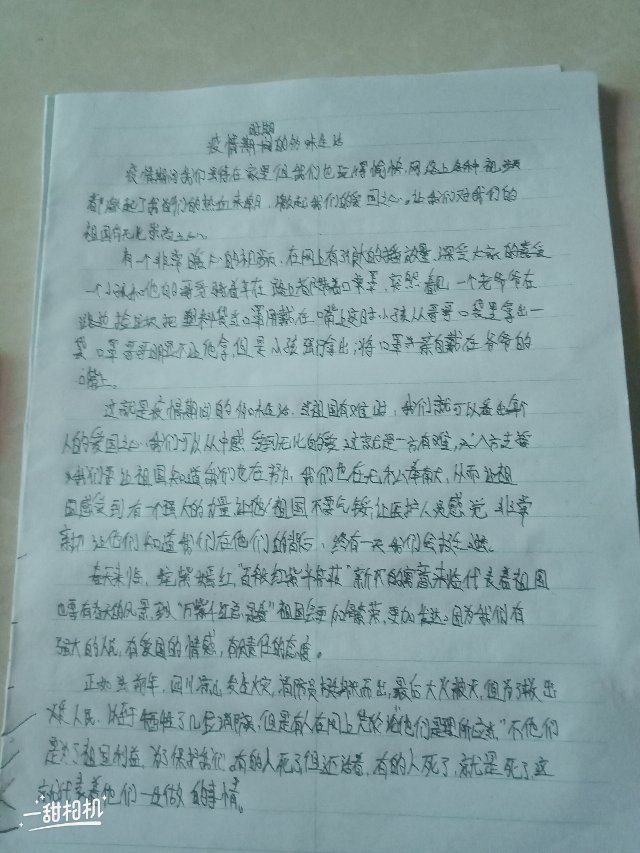 疫情期间的
疫情期间我们要待在家里但我们也玩得愉快,网络上各种视频
都燃起了我们的热血来朝,激起我们的爱国之心。让我们对我们的
祖国有无比崇志之心。
有一个非常暖心的视频,在网上有的播放量,深受大家的喜爱
一个小孩和他的哥哥骑着车在路上都带着口罩,突然看见一个老爷爷在
路边捡垃圾把塑料袋当口罩用戴在嘴上这时小孩从哥哥口袋里拿出一
袋口罩哥哥不让他拿,但是小孩强行拿出,将口罩亲自戴在爷爷的
嘴上。
这就是疫情期间的当祖国有难时,我们就可以看出每个
人的爱国之心我们可以从中感受到无比的爱这就是一方有难,八方支援
我们要让祖国知道我们也在努力,我们也在无私奉献,从而让祖
国感受到有一个强大的力量让祖国不要气馁,让医护人员感觉非常
亲切让他们知道我们在他们的背后,终有一天我们会
春天来临,姹紫嫣红,新不的寓意来临代表着祖国
也要有春天的风景,到"万紫千红总是春"祖国会更加繁荣,更加发达。因为我们有
强大的人民,有爱国的情感,有负责任的态度。
正如去前年,四川凉山发生火灾,消防员挺身而出,最后大火被灭,但为了救出
人民,以至于牺牲了几登消防员,但是有人在网上说他们是理所应当,"不他们
是为了祖国利益,为了保护我们。有的人死了但还活着,有的人死了,就是死了这
代表着他们一生做的事情。
一甜相机